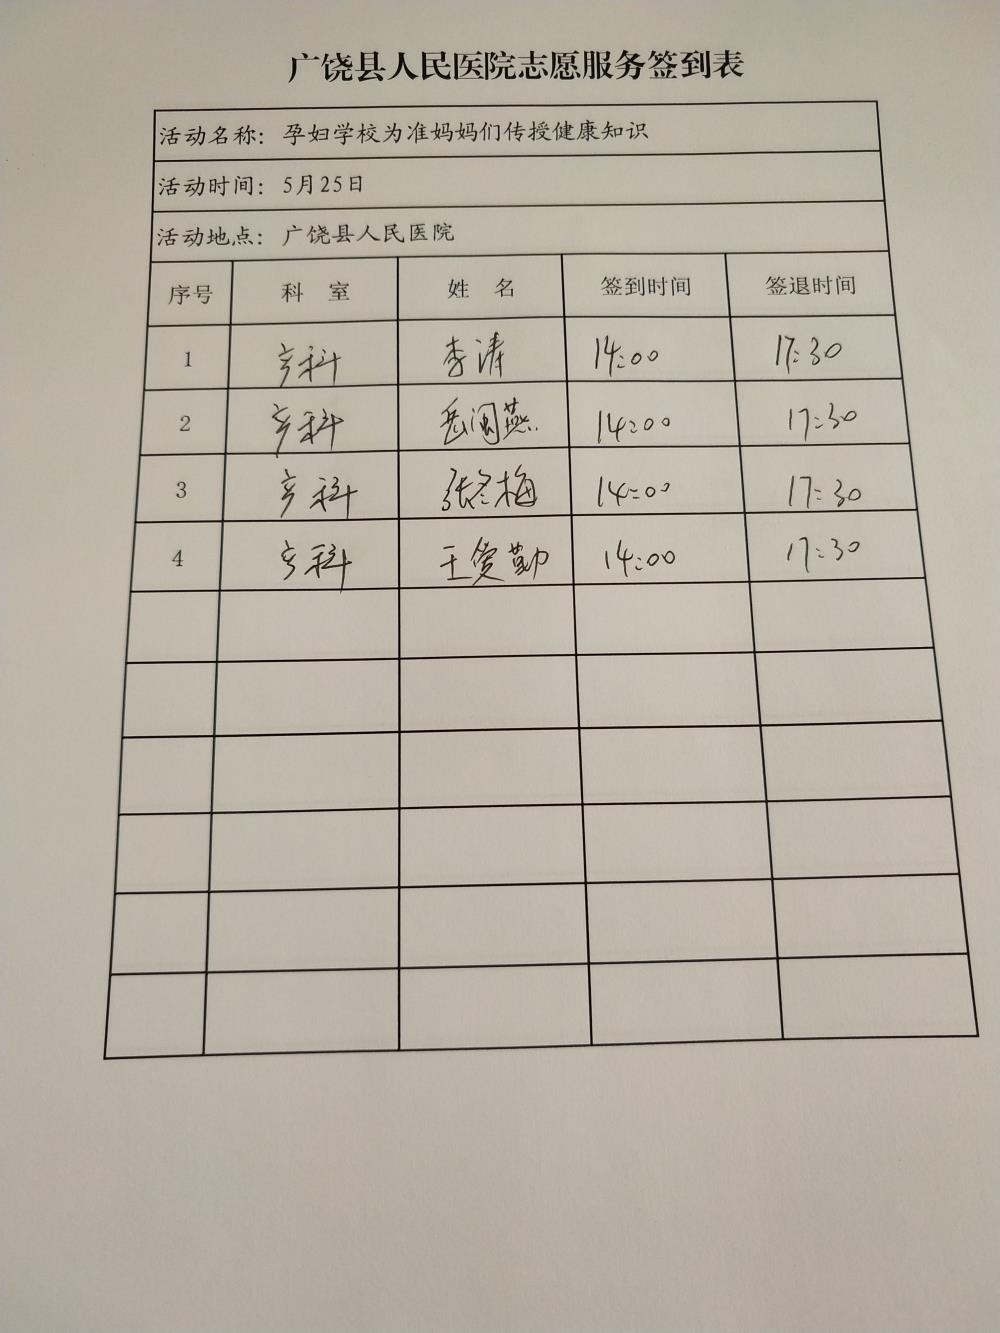 广饶县人民医院志愿服务签到表
活动名称：孕妇学校为准妈妈们传授健康知识
活动时间：5月25日
活动地点：广饶县人民医院
序号 科 室 姓 名 签到时间 签退时间
1 产科 李涛 14:00 17:30
2 产科 岳闽燕 14:00 17:30
3 产科 张冬梅 14:00 17:30
4 产科 王爱勤 14:00 17:30